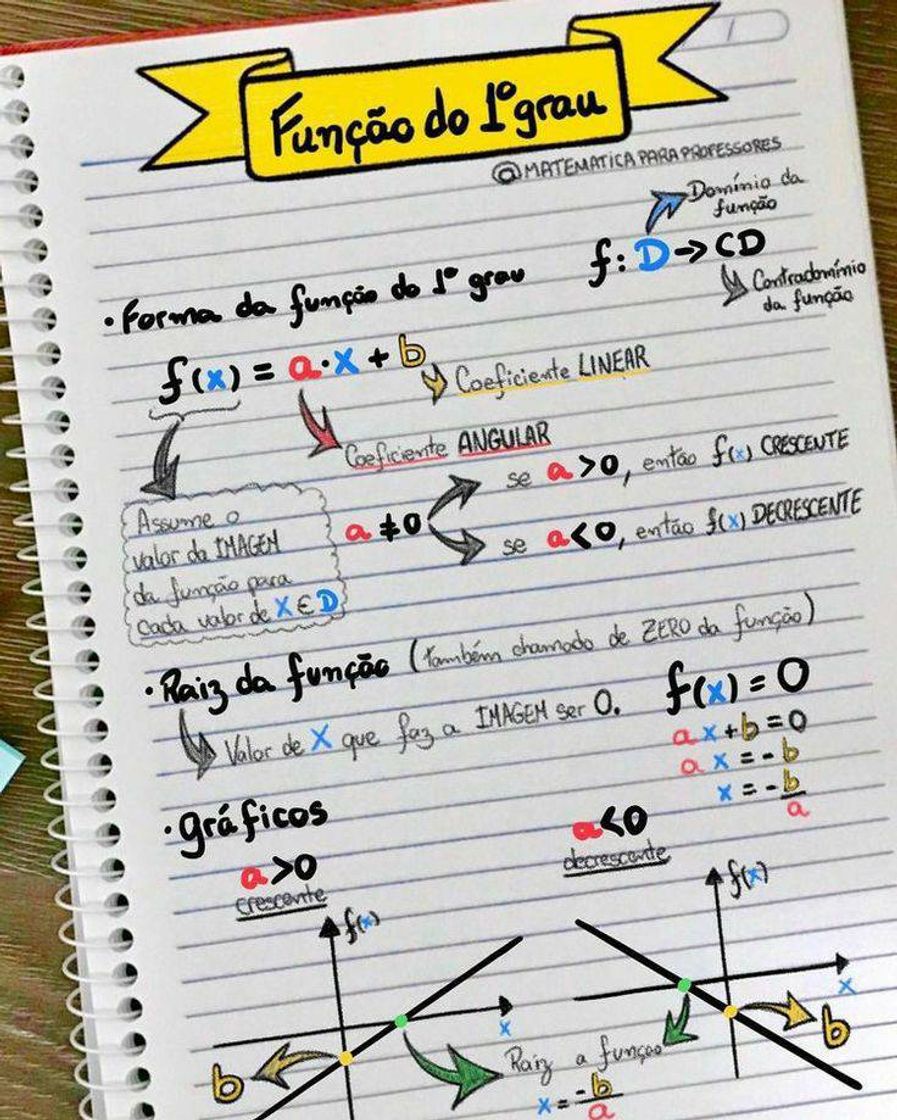 Função do 1º grau
@MATEMATICAPARAPROFESSORES
Domínio da
função
f: D → CD
Contradomínio
da função
• Forma da função do 1º grau
f(x) = a·x + b
Coeficiente LINEAR
Coeficiente ANGULAR
Assume o
valor da IMAGEM
da função para
cada valor de X ∈ D
a ≠ 0
se a > 0, então f(x) CRESCENTE
se a < 0, então f(x) DECRESCENTE
• Raiz da função (também chamado de ZERO da função)
Valor de X que faz a IMAGEM ser 0.
f(x) = 0
ax + b = 0
ax = -b
x = -b/a
• gráficos
a > 0
crescente
f(x)
x
b
a < 0
decrescente
f(x)
x
b
Raiz a função
x = -b/a